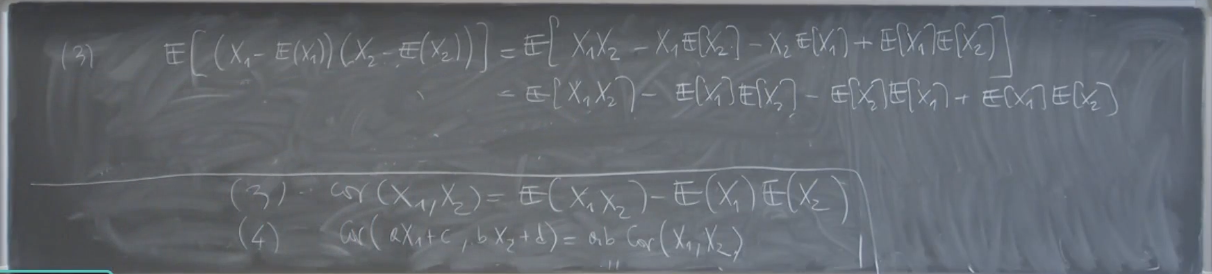 (3) 𝔼[(X₁ - 𝔼(X₁))(X₂ - 𝔼(X₂))] = 𝔼[X₁X₂ - X₁𝔼[X₂] - X₂𝔼[X₁] + 𝔼[X₁]𝔼[X₂]]
= 𝔼[X₁X₂] - 𝔼[X₁]𝔼[X₂] - 𝔼[X₂]𝔼[X₁] + 𝔼[X₁]𝔼[X₂]
(3) cov(X₁,X₂) = 𝔼(X₁X₂) - 𝔼(X₁)𝔼(X₂)
(4) Cov(aX₁+c, bX₂+d) = ab Cov(X₁,X₂)